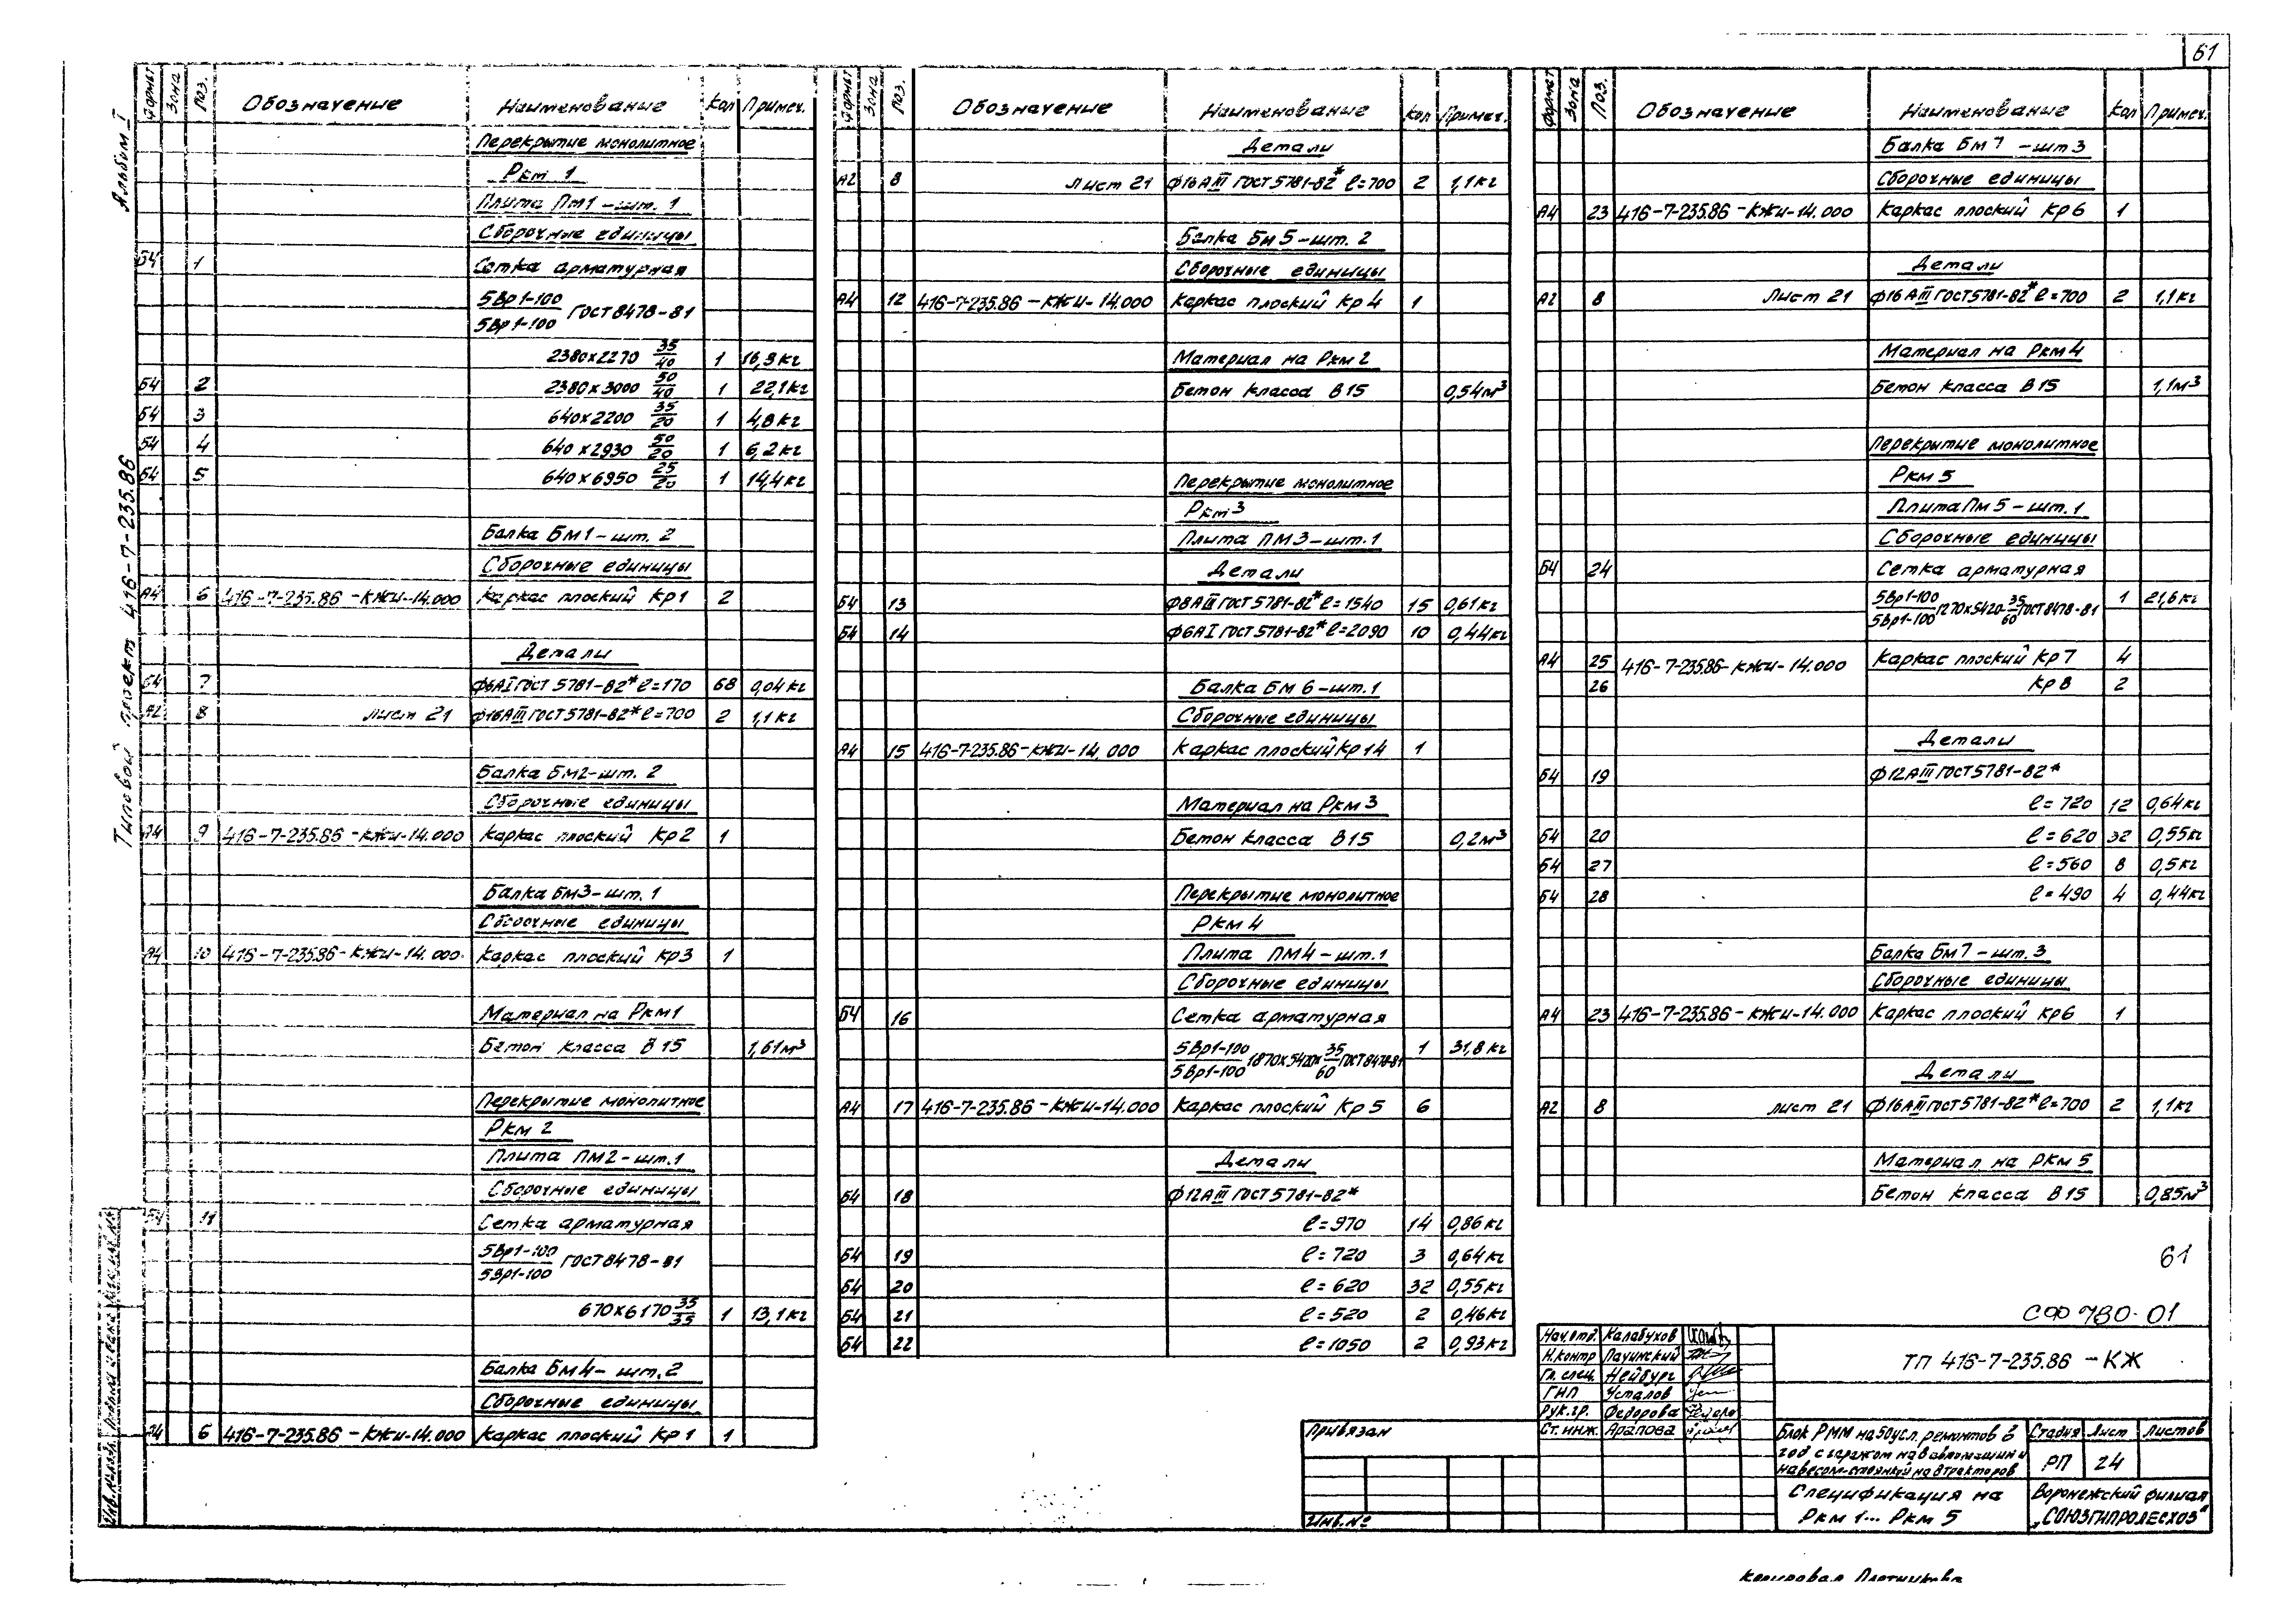 61
Альбом I
Типовой проект 416-7-235.86
Формат Зона Поз. Обозначение Наименование Кол Примеч.
Перекрытие монолитное
Ркм 1
Плита Пм1 – шт. 1
Сборочные единицы
Б4 1 Сетка арматурная
5Вр1-100
5Вр1-100 ГОСТ 8478-81
2380х2270 35/40 1 16,3кг
Б4 2 2380х3000 50/40 1 22,1кг
Б4 3 640х2200 35/20 1 4,8кг
Б4 4 640х2930 50/20 1 6,2кг
Б4 5 640х6950 25/20 1 14,4кг
Балка Бм1 – шт. 2
Сборочные единицы
А4 6 416-7-235.86-КЖИ-14.000 Каркас плоский Кр1 2
Детали
Б4 7 Ф6АI ГОСТ 5781-82* ℓ=170 68 0,04кг
А2 8 лист 21 Ф16АIII ГОСТ 5781-82* ℓ=700 2 1,1кг
Балка Бм2 – шт. 2
Сборочные единицы
А4 9 416-7-235.86-КЖИ-14.000 Каркас плоский Кр2 1
Балка Бм3 – шт. 1
Сборочные единицы
А4 10 416-7-235.86-КЖИ-14.000 Каркас плоский Кр3 1
Материал на Ркм1
Бетон класса В15 1,61м³
Перекрытие монолитное
Ркм 2
Плита Пм2 – шт. 1
Сборочные единицы
Б4 11 Сетка арматурная
5Вр1-100
5Вр1-100 ГОСТ 8478-81
670х6170 35/35 1 13,1кг
Балка Бм4 – шт. 2
Сборочные единицы
А4 6 416-7-235.86-КЖИ-14.000 Каркас плоский Кр1 1
Формат Зона Поз. Обозначение Наименование Кол Примеч.
Детали
А2 8 лист 21 Ф16АIII ГОСТ 5781-82* ℓ=700 2 1,1кг
Балка Бм5 – шт. 2
Сборочные единицы
А4 12 416-7-235.86-КЖИ-14.000 Каркас плоский Кр4 1
Материал на Ркм2
Бетон класса В15 0,54м³
Перекрытие монолитное
Ркм3
Плита Пм3 – шт. 1
Детали
Б4 13 Ф8АIII ГОСТ 5781-82* ℓ=1540 15 0,61кг
Б4 14 Ф6АI ГОСТ 5781-82* ℓ=2090 10 0,44кг
Балка Бм6 – шт. 1
Сборочные единицы
А4 15 416-7-235.86-КЖИ-14.000 Каркас плоский Кр14 1
Материал на Ркм3
Бетон класса В15 0,2м³
Перекрытие монолитное
Ркм 4
Плита Пм4 – шт. 1
Сборочные единицы
Б4 16 Сетка арматурная
5Вр1-100
5Вр1-100 1870х5420х 35/60 ГОСТ 8478-81 1 31,8кг
А4 17 416-7-235.86-КЖИ-14.000 Каркас плоский Кр5 6
Детали
Б4 18 Ф12АIII ГОСТ 5781-82*
ℓ=970 14 0,86кг
Б4 19 ℓ=720 3 0,64кг
Б4 20 ℓ=620 32 0,55кг
Б4 21 ℓ=520 2 0,46кг
Б4 22 ℓ=1050 2 0,93кг
Формат Зона Поз. Обозначение Наименование Кол Примеч.
Балка Бм7 – шт 3
Сборочные единицы
А4 23 416-7-235.86-КЖИ-14.000 Каркас плоский Кр6 1
Детали
А2 8 Лист 21 Ф16АIII ГОСТ 5781-82* ℓ=700 2 1,1кг
Материал на Ркм4
Бетон класса В15 1,1м³
Перекрытие монолитное
Ркм 5
Плита Пм5 – шт. 1
Сборочные единицы
Б4 24 Сетка арматурная
5Вр1-100
5Вр1-100 1270х5420 35/60 ГОСТ 8478-81 1 21,6кг
А4 25 416-7-235.86-КЖИ-14.000 Каркас плоский Кр7 4
26 Кр8 2
Детали
Б4 19 Ф12АIII ГОСТ 5781-82*
ℓ=720 12 0,64кг
Б4 20 ℓ=620 32 0,55кг
Б4 27 ℓ=560 8 0,5кг
Б4 28 ℓ=490 4 0,44кг
Балка Бм7 – шт. 3
Сборочные единицы
А4 23 416-7-235.86-КЖИ-14.000 Каркас плоский Кр6 1
Детали
А2 8 лист 21 Ф16АIII ГОСТ 5781-82* ℓ=700 2 1,1кг
Материал на Ркм5
Бетон класса В15 0,85м³
61
СФ 780-01
Нач.отд. Калабухов
Н.контр Пачинский
Гл. спец. Нейбург
ГИП Усталов
Рук.гр. Федорова
Ст.инж. Арапова
ТП 416-7-235.86 – КЖ
Блок РММ на 50 усл. ремонтов в
год с гаражом на 8 автомашин и
навесом-стоянкой на 8 тракторов
Стадия Лист Листов
РП 24
Спецификация на
Ркм 1... Ркм 5
Воронежский филиал
„СОЮЗГИПРОЛЕСХОЗ"
Привязан
Инв.№
Копировал Плотникова